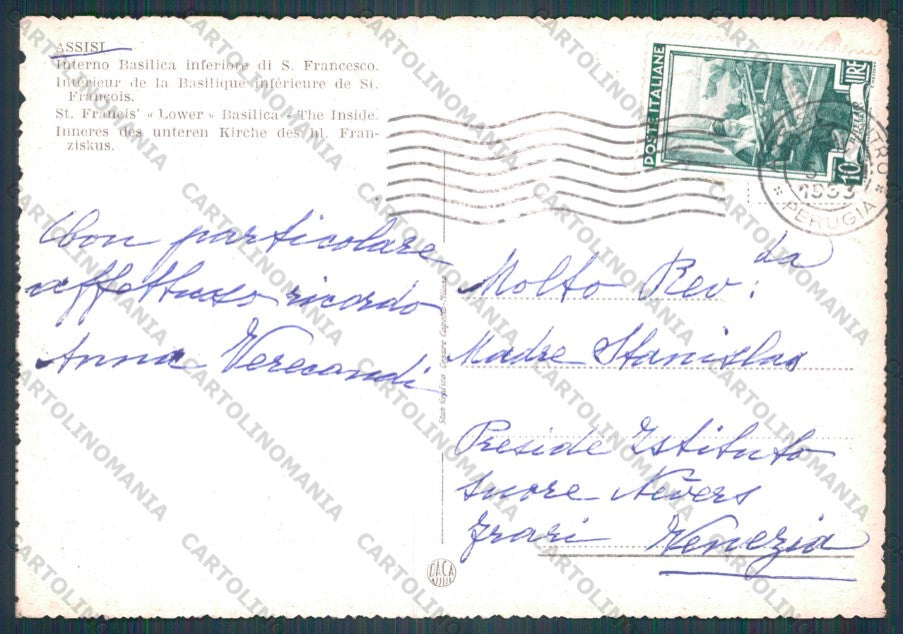 ASSISI
Interno Basilica inferiore di S. Francesco.
Intérieur de la Basilique inférieure de St.
François.
St. Francis' « Lower » Basilica - The Inside.
Inneres des unteren Kirche des hl. Fran-
ziskus.
POSTE ITALIANE
LIRE
10
1953
* PERUGIA *
Con particolare
affettuoso ricordo
Anna Verecondi
Molto Rev:da
Madre Stanislao
Preside Istituto
Suore Nevers
Frari Venezia
Stab. Grafico Cesare Capello - Milano
CARTOLINOMANIA